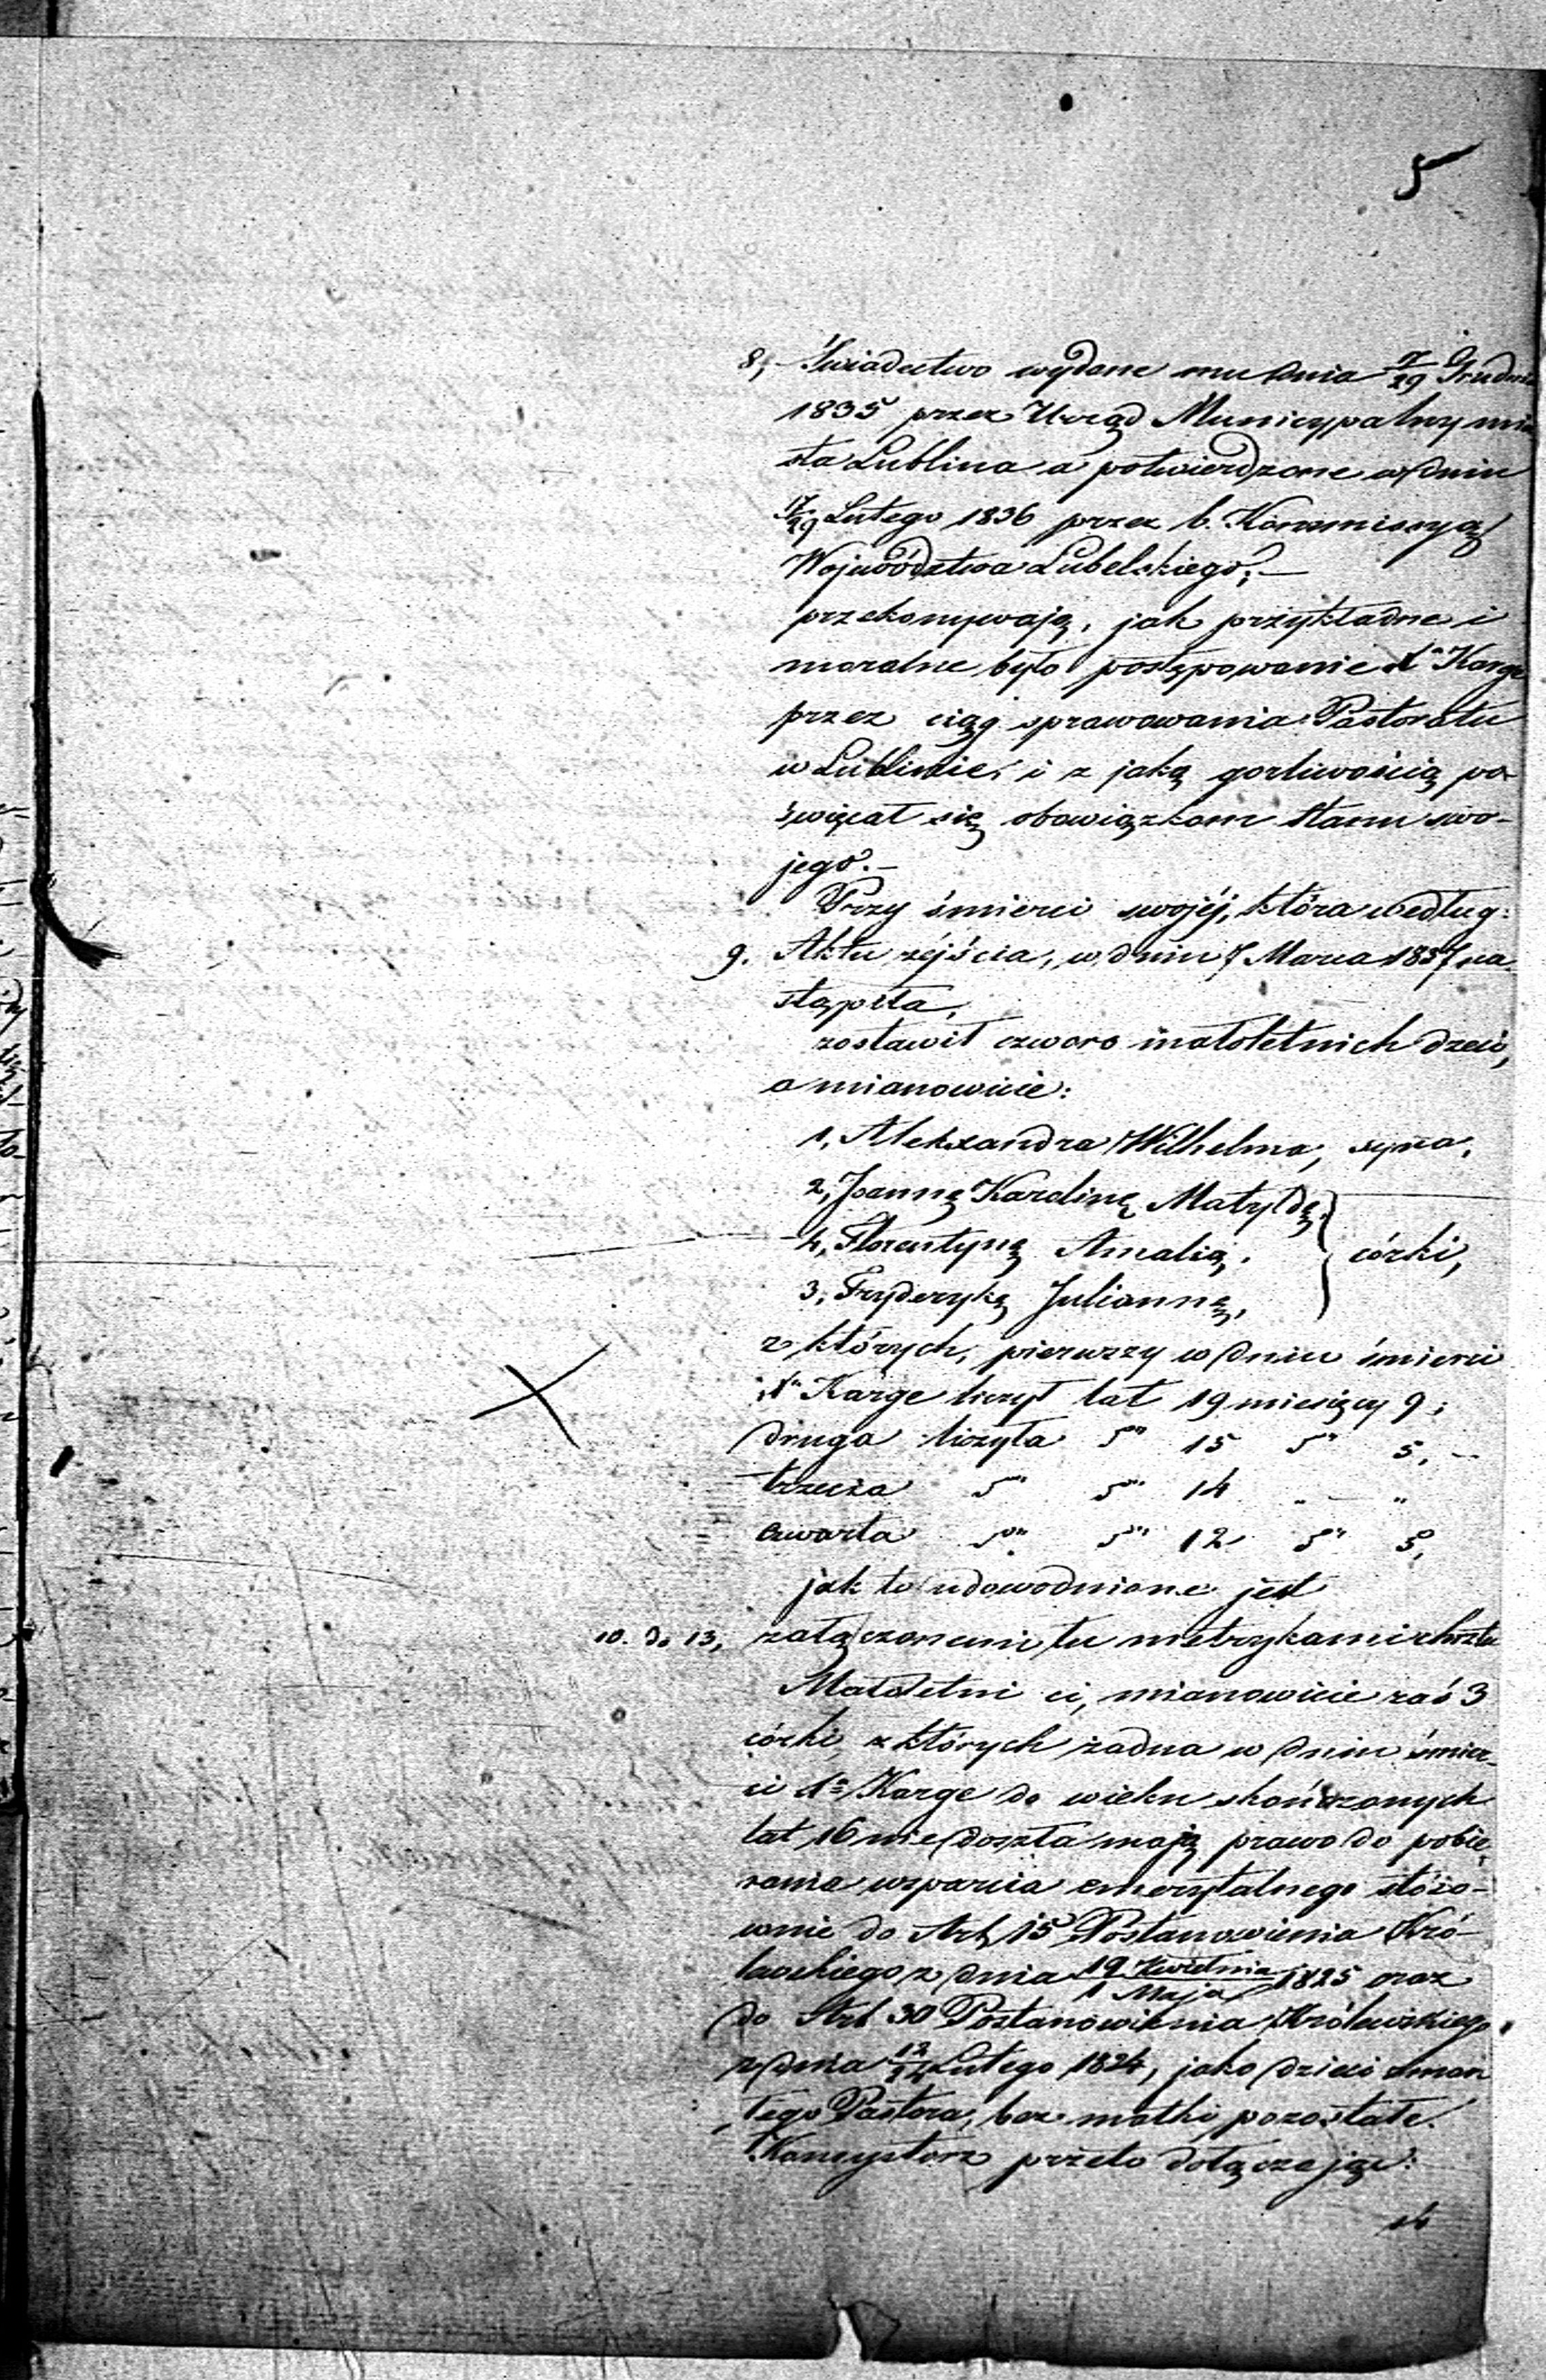 5
8, Świadectwo wydane mu dnia 17/29 Grudnia
1835 przez Urząd Municypalny mia
sta Lublina a potwierdzone w dniu
17/29 Lutego 1836 przez b. Kommissyą
Województwa Lubelskiego;–
przekonywają, jak przykładne i
moralne było postępowanie Karge
przez ciąg sprawowania Pastoratu
w Lublinie, i z jaką gorliwością po-
święcał się obowiązkom stanu swo-
jego.–
Przy śmierci swojéj, która według:
9. Aktu zéjścia, w dniu 7 Marca 1837 na-
stąpiła,
zostawił czworo małoletnich dzieci,
a mianowicie:
1, Alekzandra Wilhelma, syna,
2, Joannę Karolinę Matyldę,
4, Florentynę Amalią,
córki,
3, Fryderykę Juliannę,
z których, pierwszy w dniu śmierci
Karge liczył lat 19 miesięcy 9;
druga liczyła " 15 " 5,–
trzecia " " 14 " – "
czwarta " " 12 " 5,
jak to udowodnione jest
10. do 13, załączonemi tu metrykami chrztu
Małoletni ci, mianowicie zaś 3
córki, z których żadna w dniu śmier-
ci Karge do wieku skończonych
lat 16 nie doszła mają prawo do pobie-
rania wsparcia emerytalnego stóso-
wnie do Art, 15 Postanowienia Kró-
lewskiego z dnia 19 Kwietnia/1 Maja 1825 oraz
do Art 30 Postanowienia Królewskiego
z dnia 12/24 Lutego 1824, jako dzieci zmar
łego Pastora, bez matki pozostałe.
Konsystorz przeto dołączając: